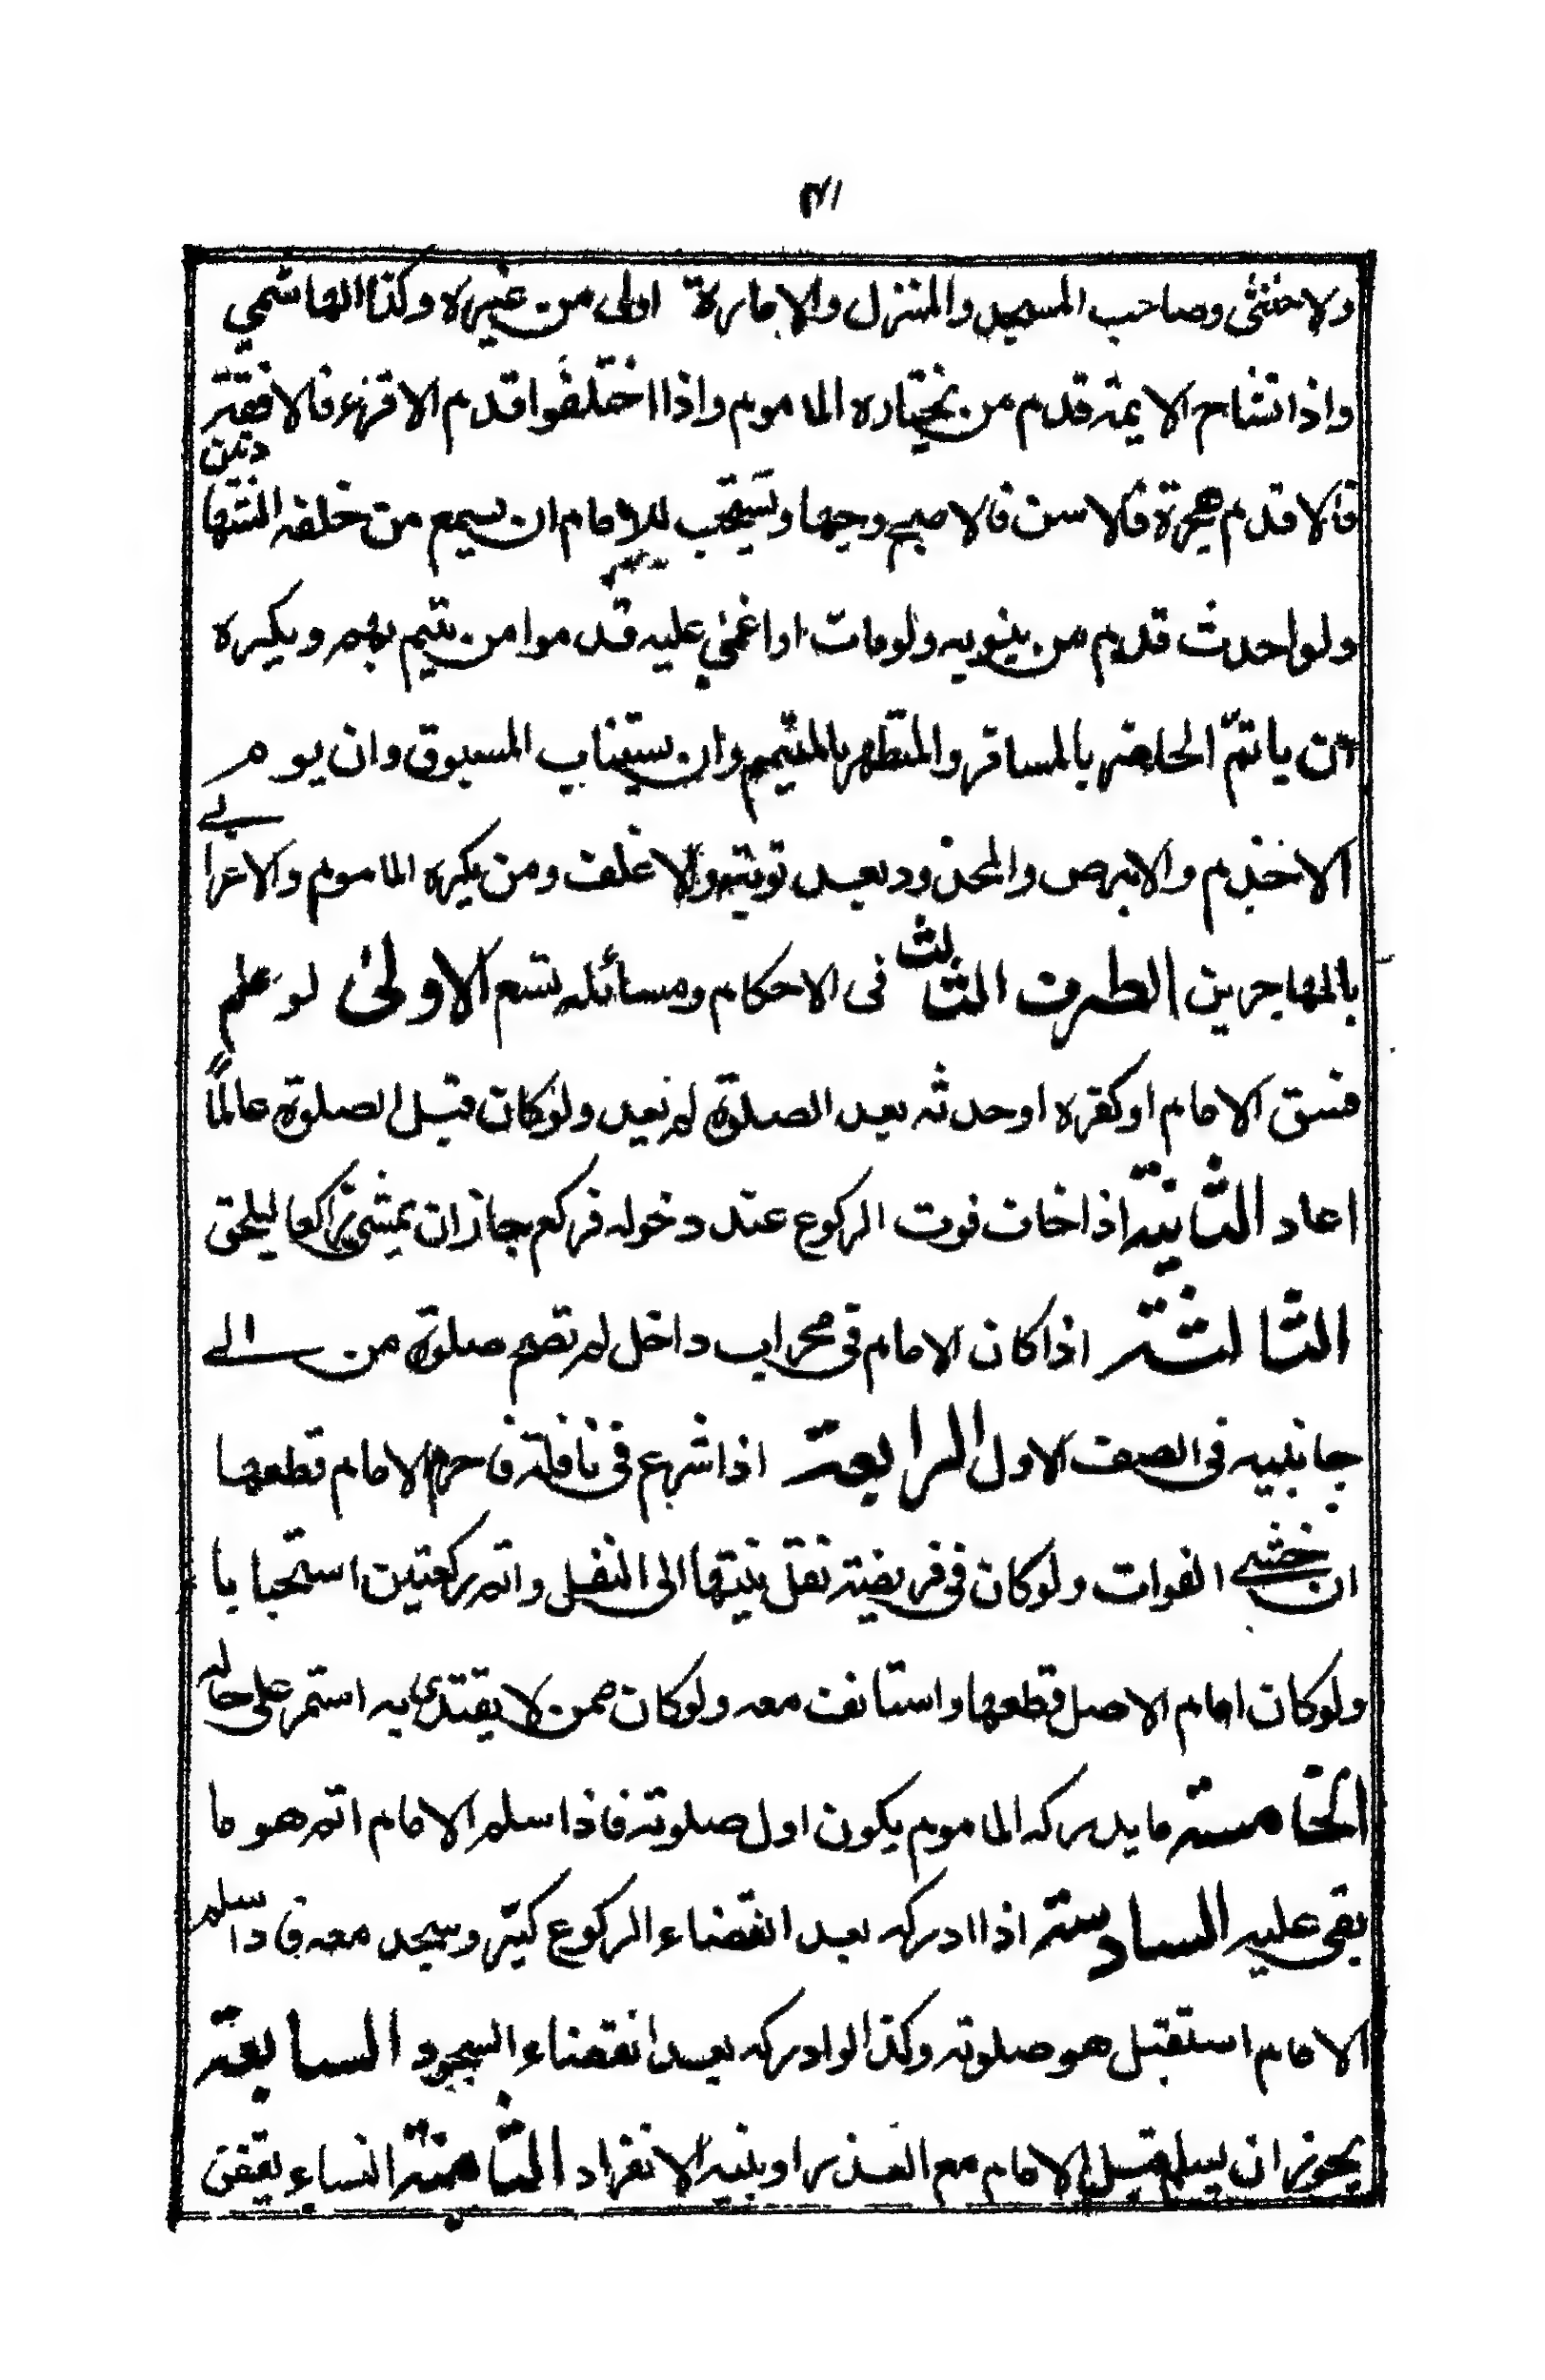 ٤١
ولا خنثى وصاحب المسجد والمنزل والامارة اولى من غيره وكذا الهاشمي
واذا تشاح الايمة قدم من يختاره الماموم واذا اختلفوا قدم الاقرء فالافقه
فالاقدم هجرة فالاسن فالاصبح وجها ويستحب للامام ان يسمع من خلفه الشهادتين
ولو احدث قدم من ينوبه ولومات او اغمي عليه قدموا من يتم بهم ويكره
ان ياتم الحاضر بالمسافر والمتطهر بالمتيمم وان يستناب المسبوق وان يوم
الاجذم والابرص والمحدود بعد توبته والاغلف ومن يكره الماموم والاعرابي
بالمهاجرين الطرف الثالث فى الاحكام ومسائله تسع الاولى لو علم
فسق الامام او كفره او حدثه بعد الصلوة لم يعد ولو كان قبل الصلوة عالمًا
اعاد الثانية اذا خاف فوت الركوع عند دخوله فركع جاز ان يمشي راكعا ليلحق
الثالثة اذا كان الامام فى محراب داخل لم تصح صلوة من الى
جانبيه فى الصف الاول الرابعة اذا شرع فى نافلة فاحرم الامام قطعها
ان خشي الفوات ولو كان فى فريضة نقل نيتها الى النفل واتم ركعتين استحبابا
ولو كان امام الاصل قطعها واستانف معه ولو كان ممن لا يقتدى به استمر على حاله
الخامسة ما يدركه الماموم يكون اول صلوته فاذا سلم الامام اتم هو ما
بقى عليه السادسة اذا ادركه بعد انقضاء الركوع كبر وسجد معه فاذا سلم
الامام استقبل هو صلوته وكذا لو ادركه بعد انقضاء السجود السابعة
يجوز ان يسلم قبل الامام مع العذر او بنية الانفراد الثامنة النساء يقفن